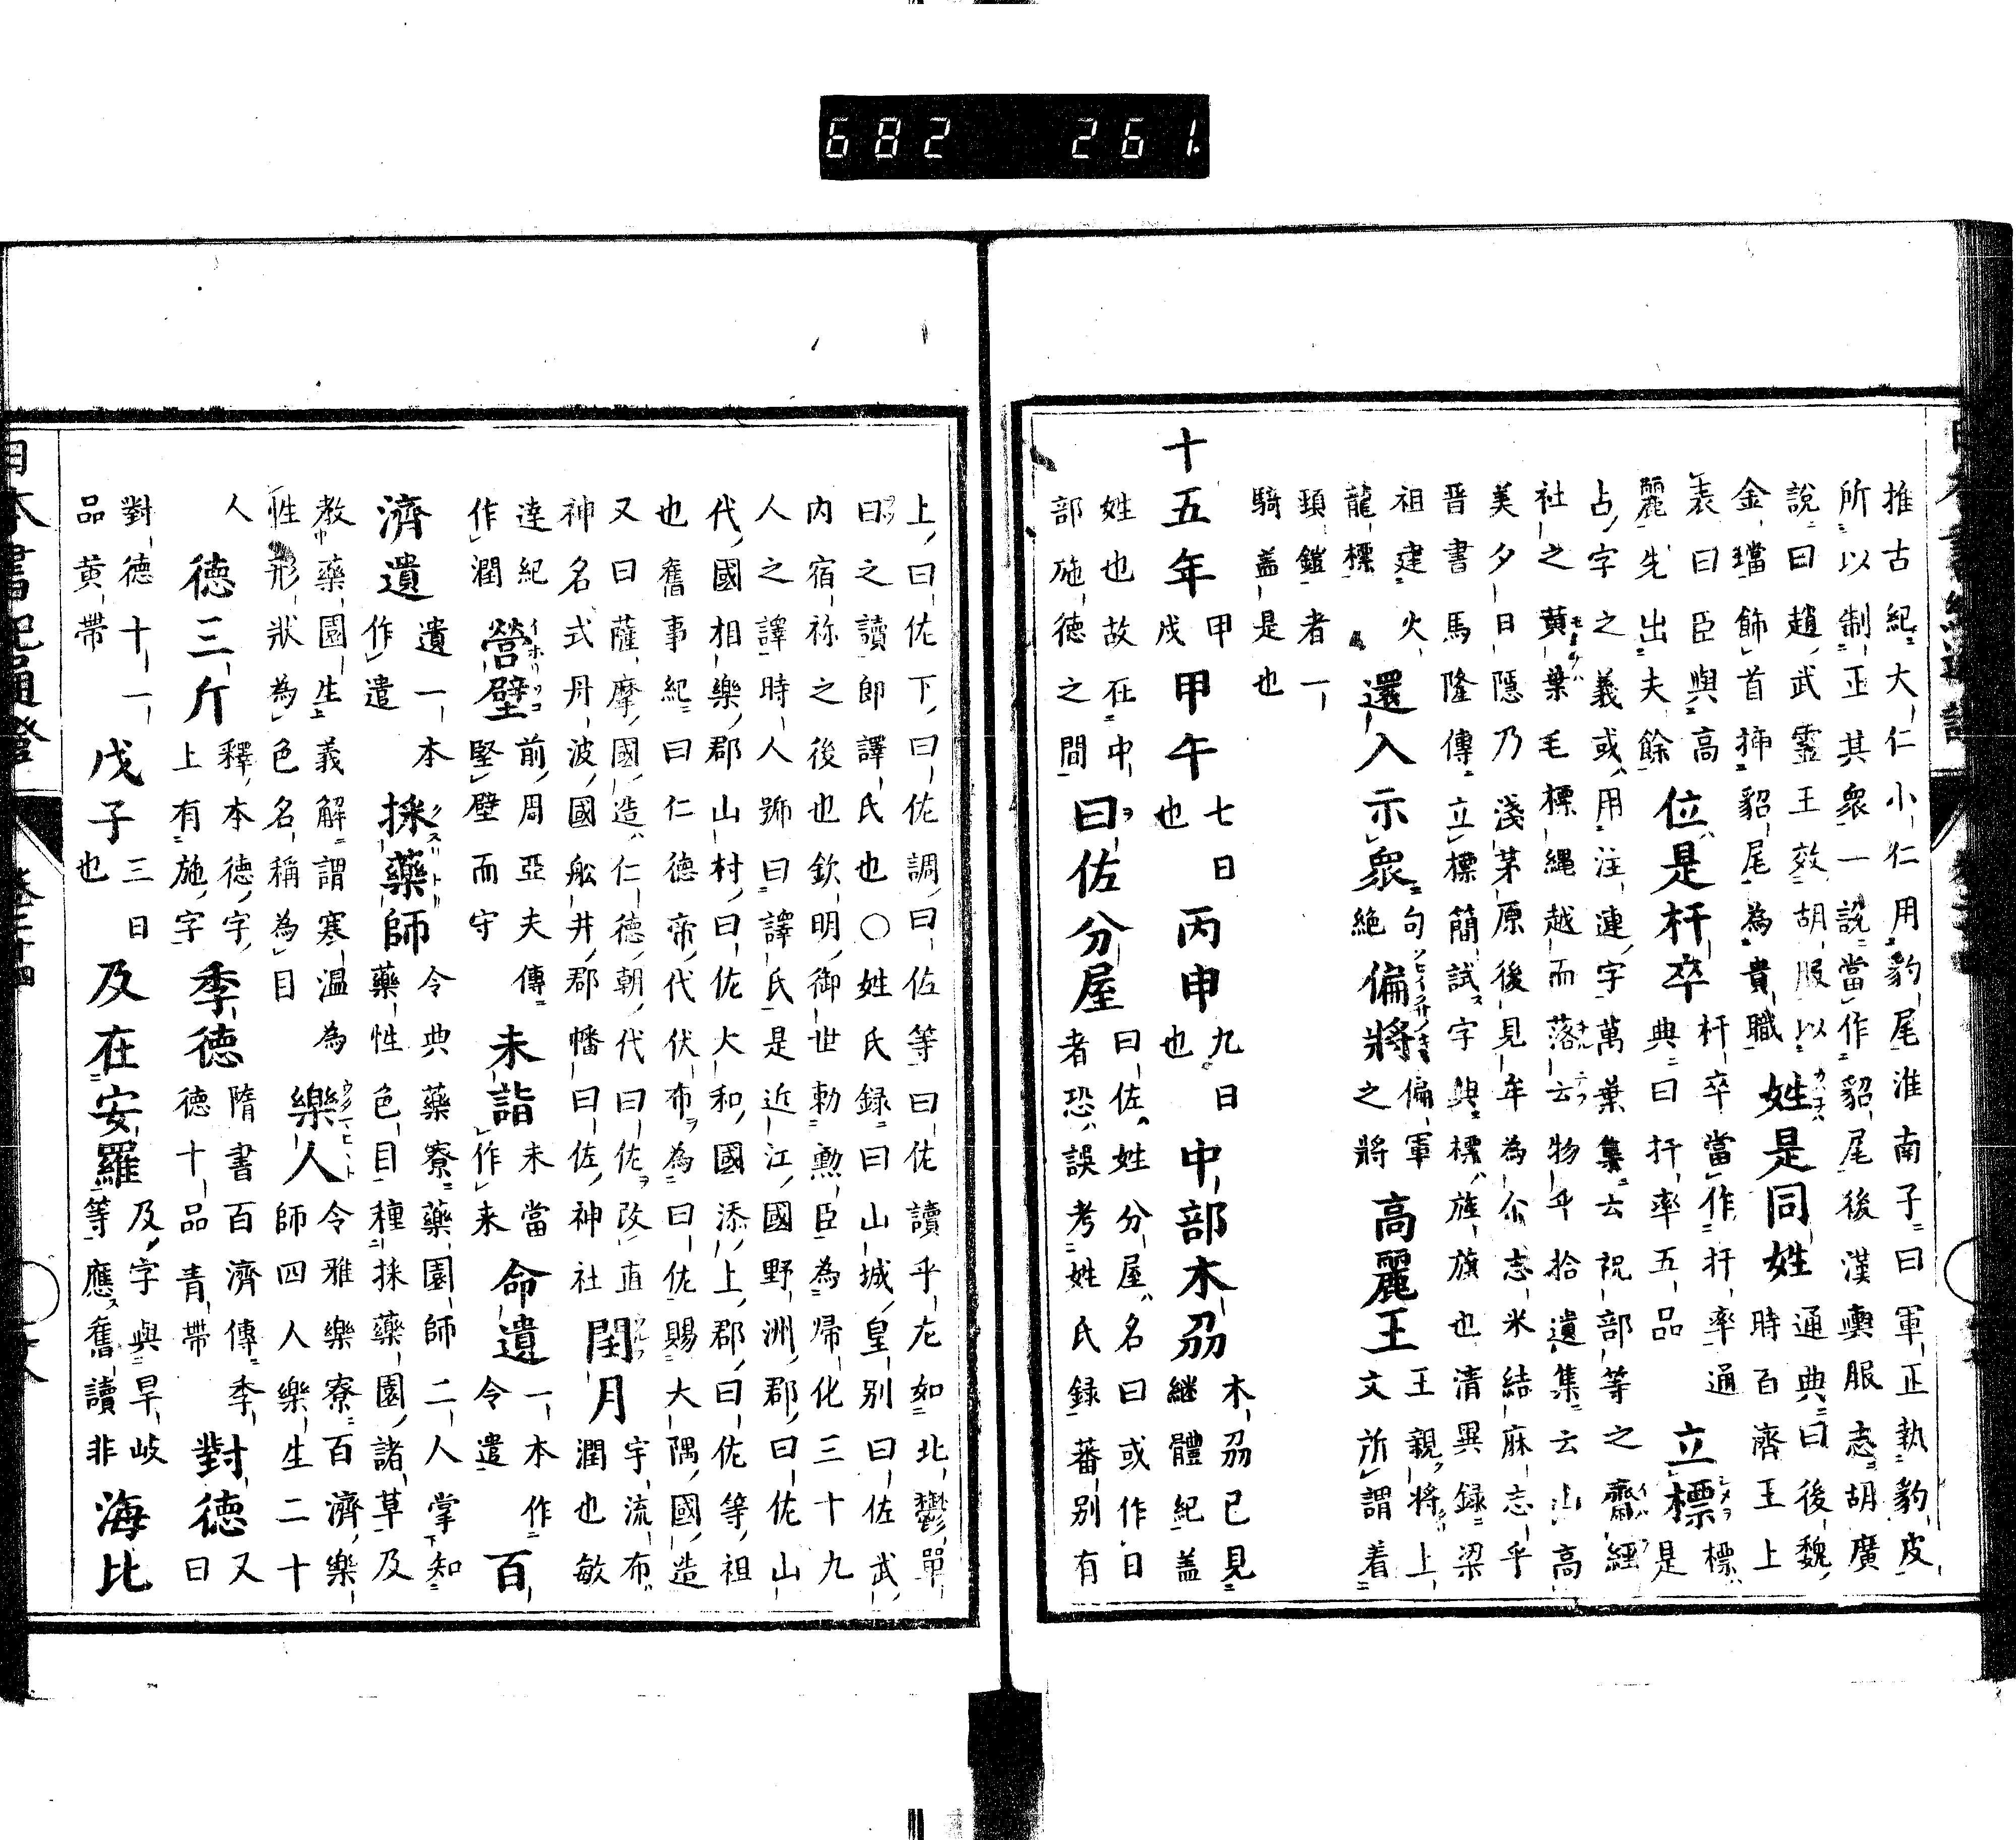 682 261.
推古紀大仁小仁用豹尾淮南子曰軍正執豹皮
所以制正其衆一說當作貂尾後漢輿服志胡廣
說曰趙武靈王效胡服以
金璫飾首揷貂尾為貴職
姓是同姓
通典曰後魏
時百濟王上
表曰臣與高
麗先出夫餘
位是杆卒
杆卒當作扞率通
典曰扞率五品
立標
標
是
占字之義或用注連字萬葉集云祝部等之齋經
社之黃葉毛標繩越而落云物乎拾遺集云山高
美夕日隱乃淺茅原後見年為尒志米結麻志乎
晋書馬隆傳立標簡試字與標旌旗也清異録梁
祖建火
龍標
還入示衆
句
絶
偏將
偏軍
之將
高麗王
王親將上
文所謂着
頸鎧者一
騎盖是也
十五年
甲
戌
甲午
七日
也
丙申
九日
也
中部木刕
木刕已見
継體紀盖
姓也故在中
部施德之間
曰佐分屋
曰佐姓分屋名曰或作日
者恐誤考姓氏録蕃別有
上曰佐下曰佐調曰佐等曰佐讀乎左如北鬱單
曰之讀即譯氏也〇姓氏録曰山城皇別曰佐武
内宿祢之後也欽明御世勅勲臣為帰化三十九
人之譯時人號曰譯氏是近江國野洲郡曰佐山
代國相樂郡山村曰佐大和國添上郡曰佐等祖
也舊事紀曰仁德帝代伏布為曰佐賜大隅國造
又曰薩摩國造仁德朝代曰佐改直
神名式丹波國舩井郡幡曰佐神社
閏月
字流布
潤也敏
達紀
作潤
營壁
前周亞夫傳
堅壁而守
未詣
未當
作来
命遣
一本作
令遣
百
濟遣
遺一本
作遣
採藥師
令典藥寮藥園師二人掌知
藥性色目種採藥園諸草及
教藥園生義解謂寒温為
性形狀為色名稱為目
樂人
令雅樂寮百濟樂
師四人樂生二十
人
德三斤
釋本德字
上有施字
季德
隋書百濟傳季
德十品青帶
對德
又
曰
對德十一
品黄帶
戊子
三日
也
及在安羅
及字與早岐
等應舊讀非
海比